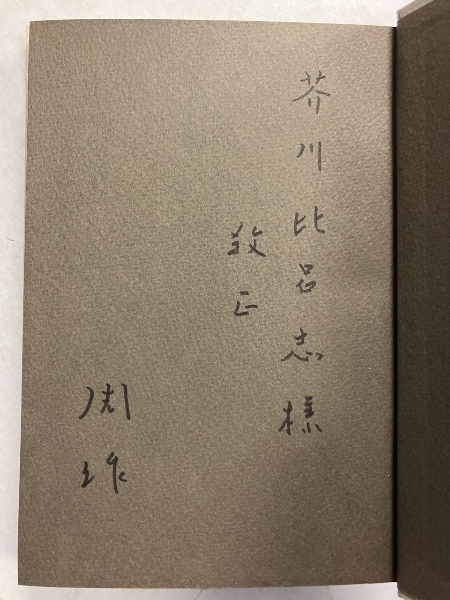 芥川比呂志様
教正
周作